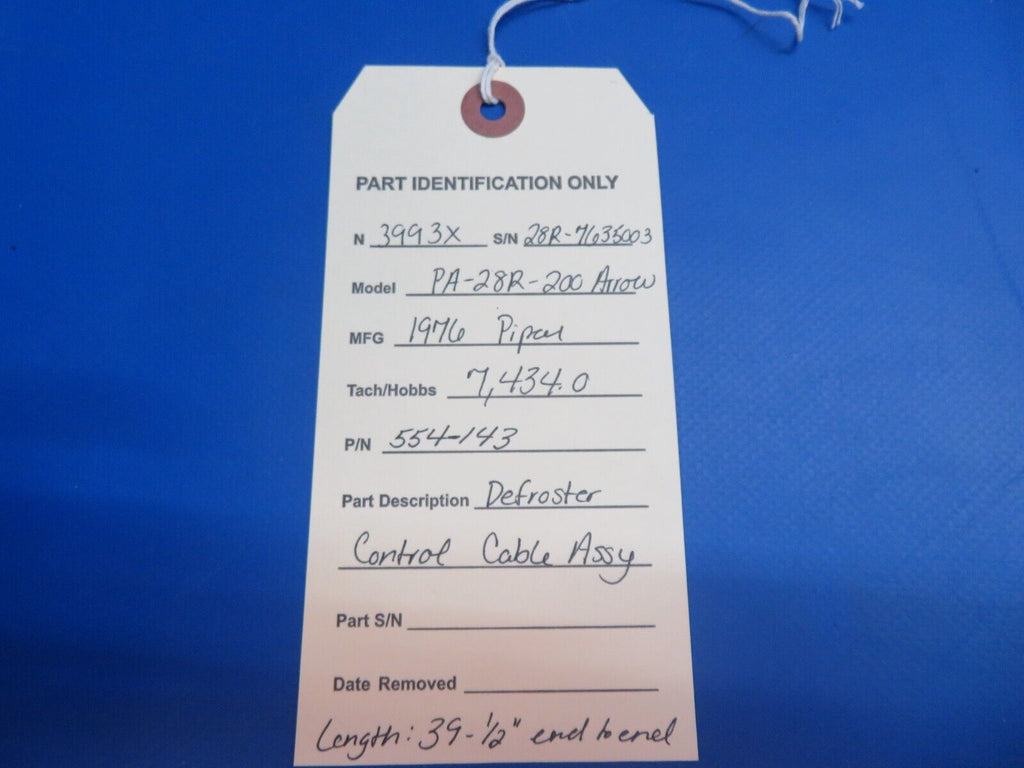 PART IDENTIFICATION ONLY
N 3993X S/N 28R-7635003
Model PA-28R-200 Arrow
MFG 1976 Piper
Tach/Hobbs 7,434.0
P/N 554-143
Part Description Defroster
Control Cable Assy
Part S/N
Date Removed
Length: 39-1/2" end to end